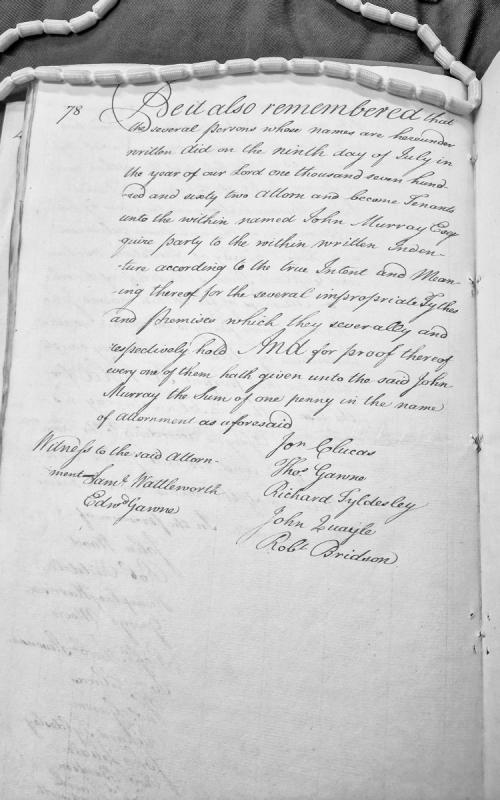 78 Be it also remembered that
the several persons whose names are hereunder
written did on the ninth day of July in
the year of our Lord one thousand seven hund-
red and sixty two attorn and become Tenants
unto the within named John Murray Esq-
quire party to the within written Inden-
-ture according to the true Intent and Mean-
-ing thereof for the several impropriate Tythes
and premises which they severally and
respectively hold And for proof thereof
every one of them hath given unto the said John
Murray the Sum of one penny in the name
of attornment as aforesaid
Witness to the said Attorn-
-ment Saml Wattleworth
Edwd Gawne
Jon Clucas
Thos Gawne
Richard Tyldesley
John Quayle
Robt Bridson